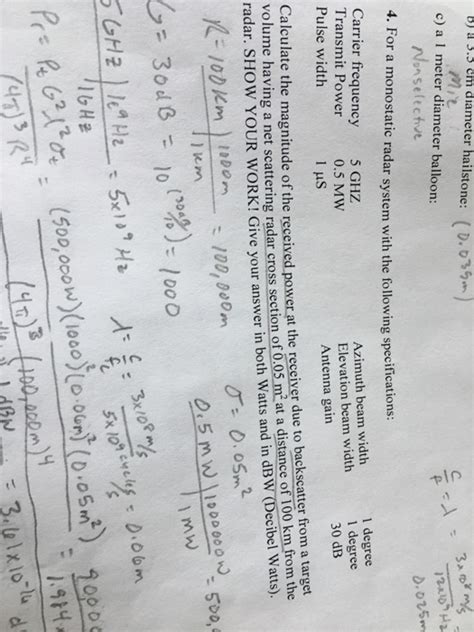 b) a 3.3 cm diameter hailstone: (0.035m)
Miz
c) a 1 meter diameter balloon:
Nonselective
c/f = λ = 3x10⁸ m/s / 12x10⁹ Hz
0.025m
4. For a monostatic radar system with the following specifications:
Carrier frequency 5 GHZ Azimuth beam width 1 degree
Transmit Power 0.5 MW Elevation beam width 1 degree
Pulse width 1 µS Antenna gain 30 dB
Calculate the magnitude of the received power at the receiver due to backscatter from a target
volume having a net scattering radar cross section of 0.05 m² at a distance of 100 km from the
radar. SHOW YOUR WORK! Give your answer in both Watts and in dBW (Decibel Watts).
R = 100km | 1000m / 1km = 100,000m σ = 0.05m²
0.5MW | 1000000W / 1MW = 500,
G = 30dB = 10^(30dB/10) = 1000
5GHZ | 1e⁹ Hz / 1GHz = 5x10⁹ Hz λ = c/f = 3x10⁸ m/s / 5x10⁹ cycles/s = 0.06m
Pr = Pt G² λ² σt / (4π)³ R⁴ = (500,000W)(1000)²(0.06m)²(0.05m²) / (4π)³ (100,000m)⁴ = 90000 / 1.984x
1 dBW = 3.61x10⁻¹⁶ d